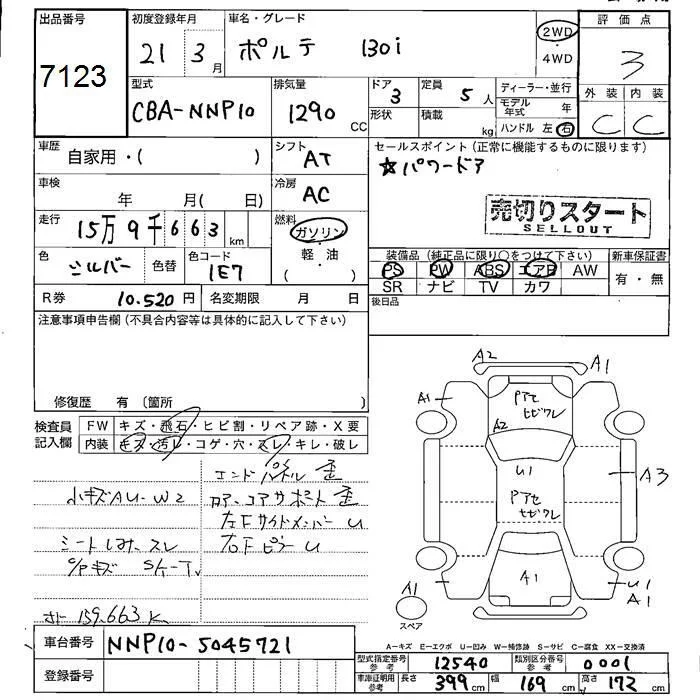 出品番号
7123
初度登録年月
21 3 月
車名・グレード
ポルテ 130i
2WD
4WD
評価点
3
外装 内装
C C
型式
CBA-NNP10
排気量
1290 CC
ドア
3
形状
定員
5 人
積載
kg
ディーラー・並行
モデル年式 年
ハンドル 左 右
車歴
自家用・( )
シフト
AT
セールスポイント(正常に機能するものに限ります)
☆パワードア
車検
年 月( 日)
冷房
AC
売切りスタート
SELLOUT
走行
15万9千663 km
燃料
ガソリン
軽・油
( )
色
シルバー
色替
色コード
1E7
装備品(純正品に限り○をつけて下さい)
PS PW ABS エアB AW
SR ナビ TV カワ
新車保証書
有・無
R券
10.520 円
名変期限 月 日
後日品
注意事項申告欄(不具合内容等は具体的に記入して下さい)
修復歴 有(箇所 )
検査員記入欄
FW キズ・飛石・ヒビ割・リペア跡・X要
内装 キズ・汚レ・コゲ・穴・スレ・キレ・破レ
エンドパネル 歪
小キズAU-W2
コアサポート 歪
左Fサイドメンバー U
シートしみ、スレ
右Fピラー U
メーター 159.663K
A2
A1
A1
Pアセ
ヒビワレ
A2
U1
Pアセ
ヒビワレ
A3
A1
A1
スペア
U1
A1
A=キズ E=エクボ U=凹み W=補修跡 S=サビ C=腐食 XX=交換済
車台番号
NNP10-5045721
登録番号
型式指定番号
参考
12540
類別区分番号
参考
0001
車庫証明用
参考
長さ 399 cm
幅 169 cm
高さ 172 cm